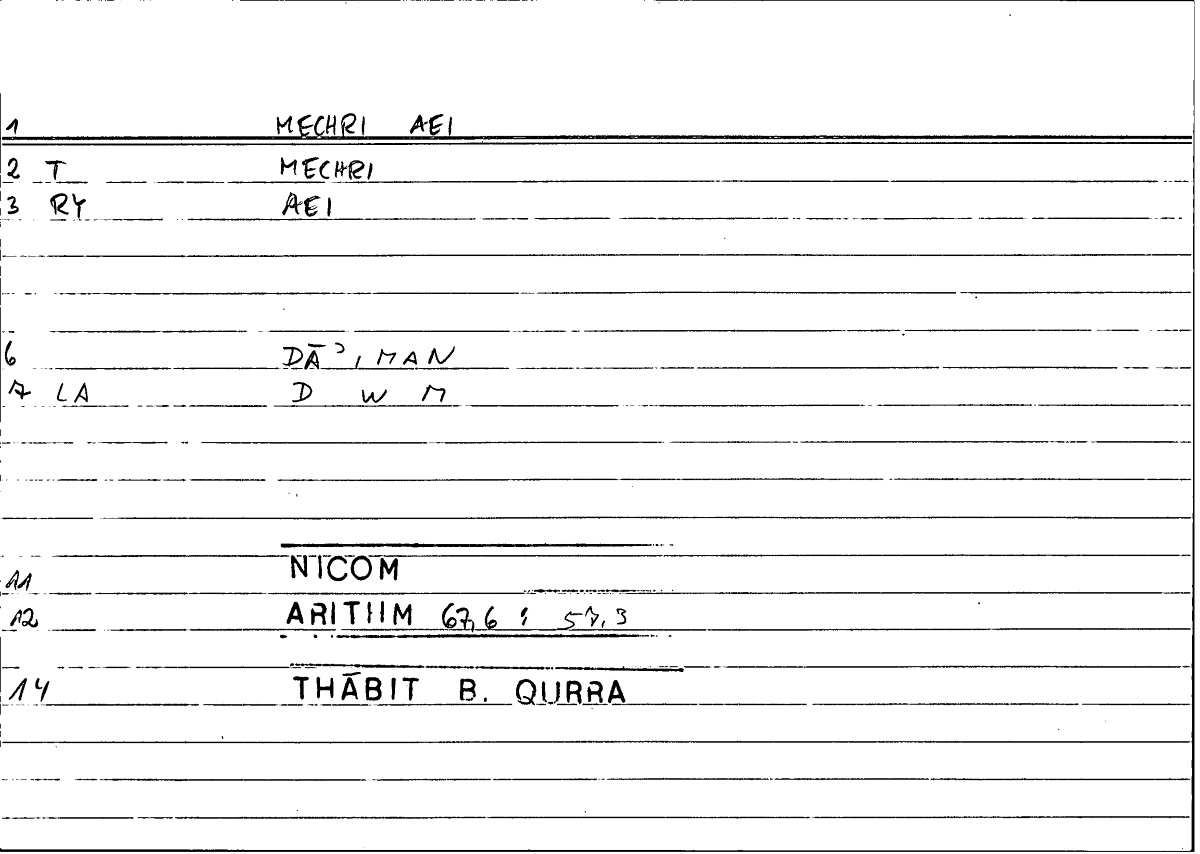 1 MECHRI AEI
2 T MECHRI
3 RY AEI
6 DĀʾIMAN
7 LA D W M
11 NICOM
12 ARITHM 67,6 : 57,3
14 THĀBIT B. QURRA